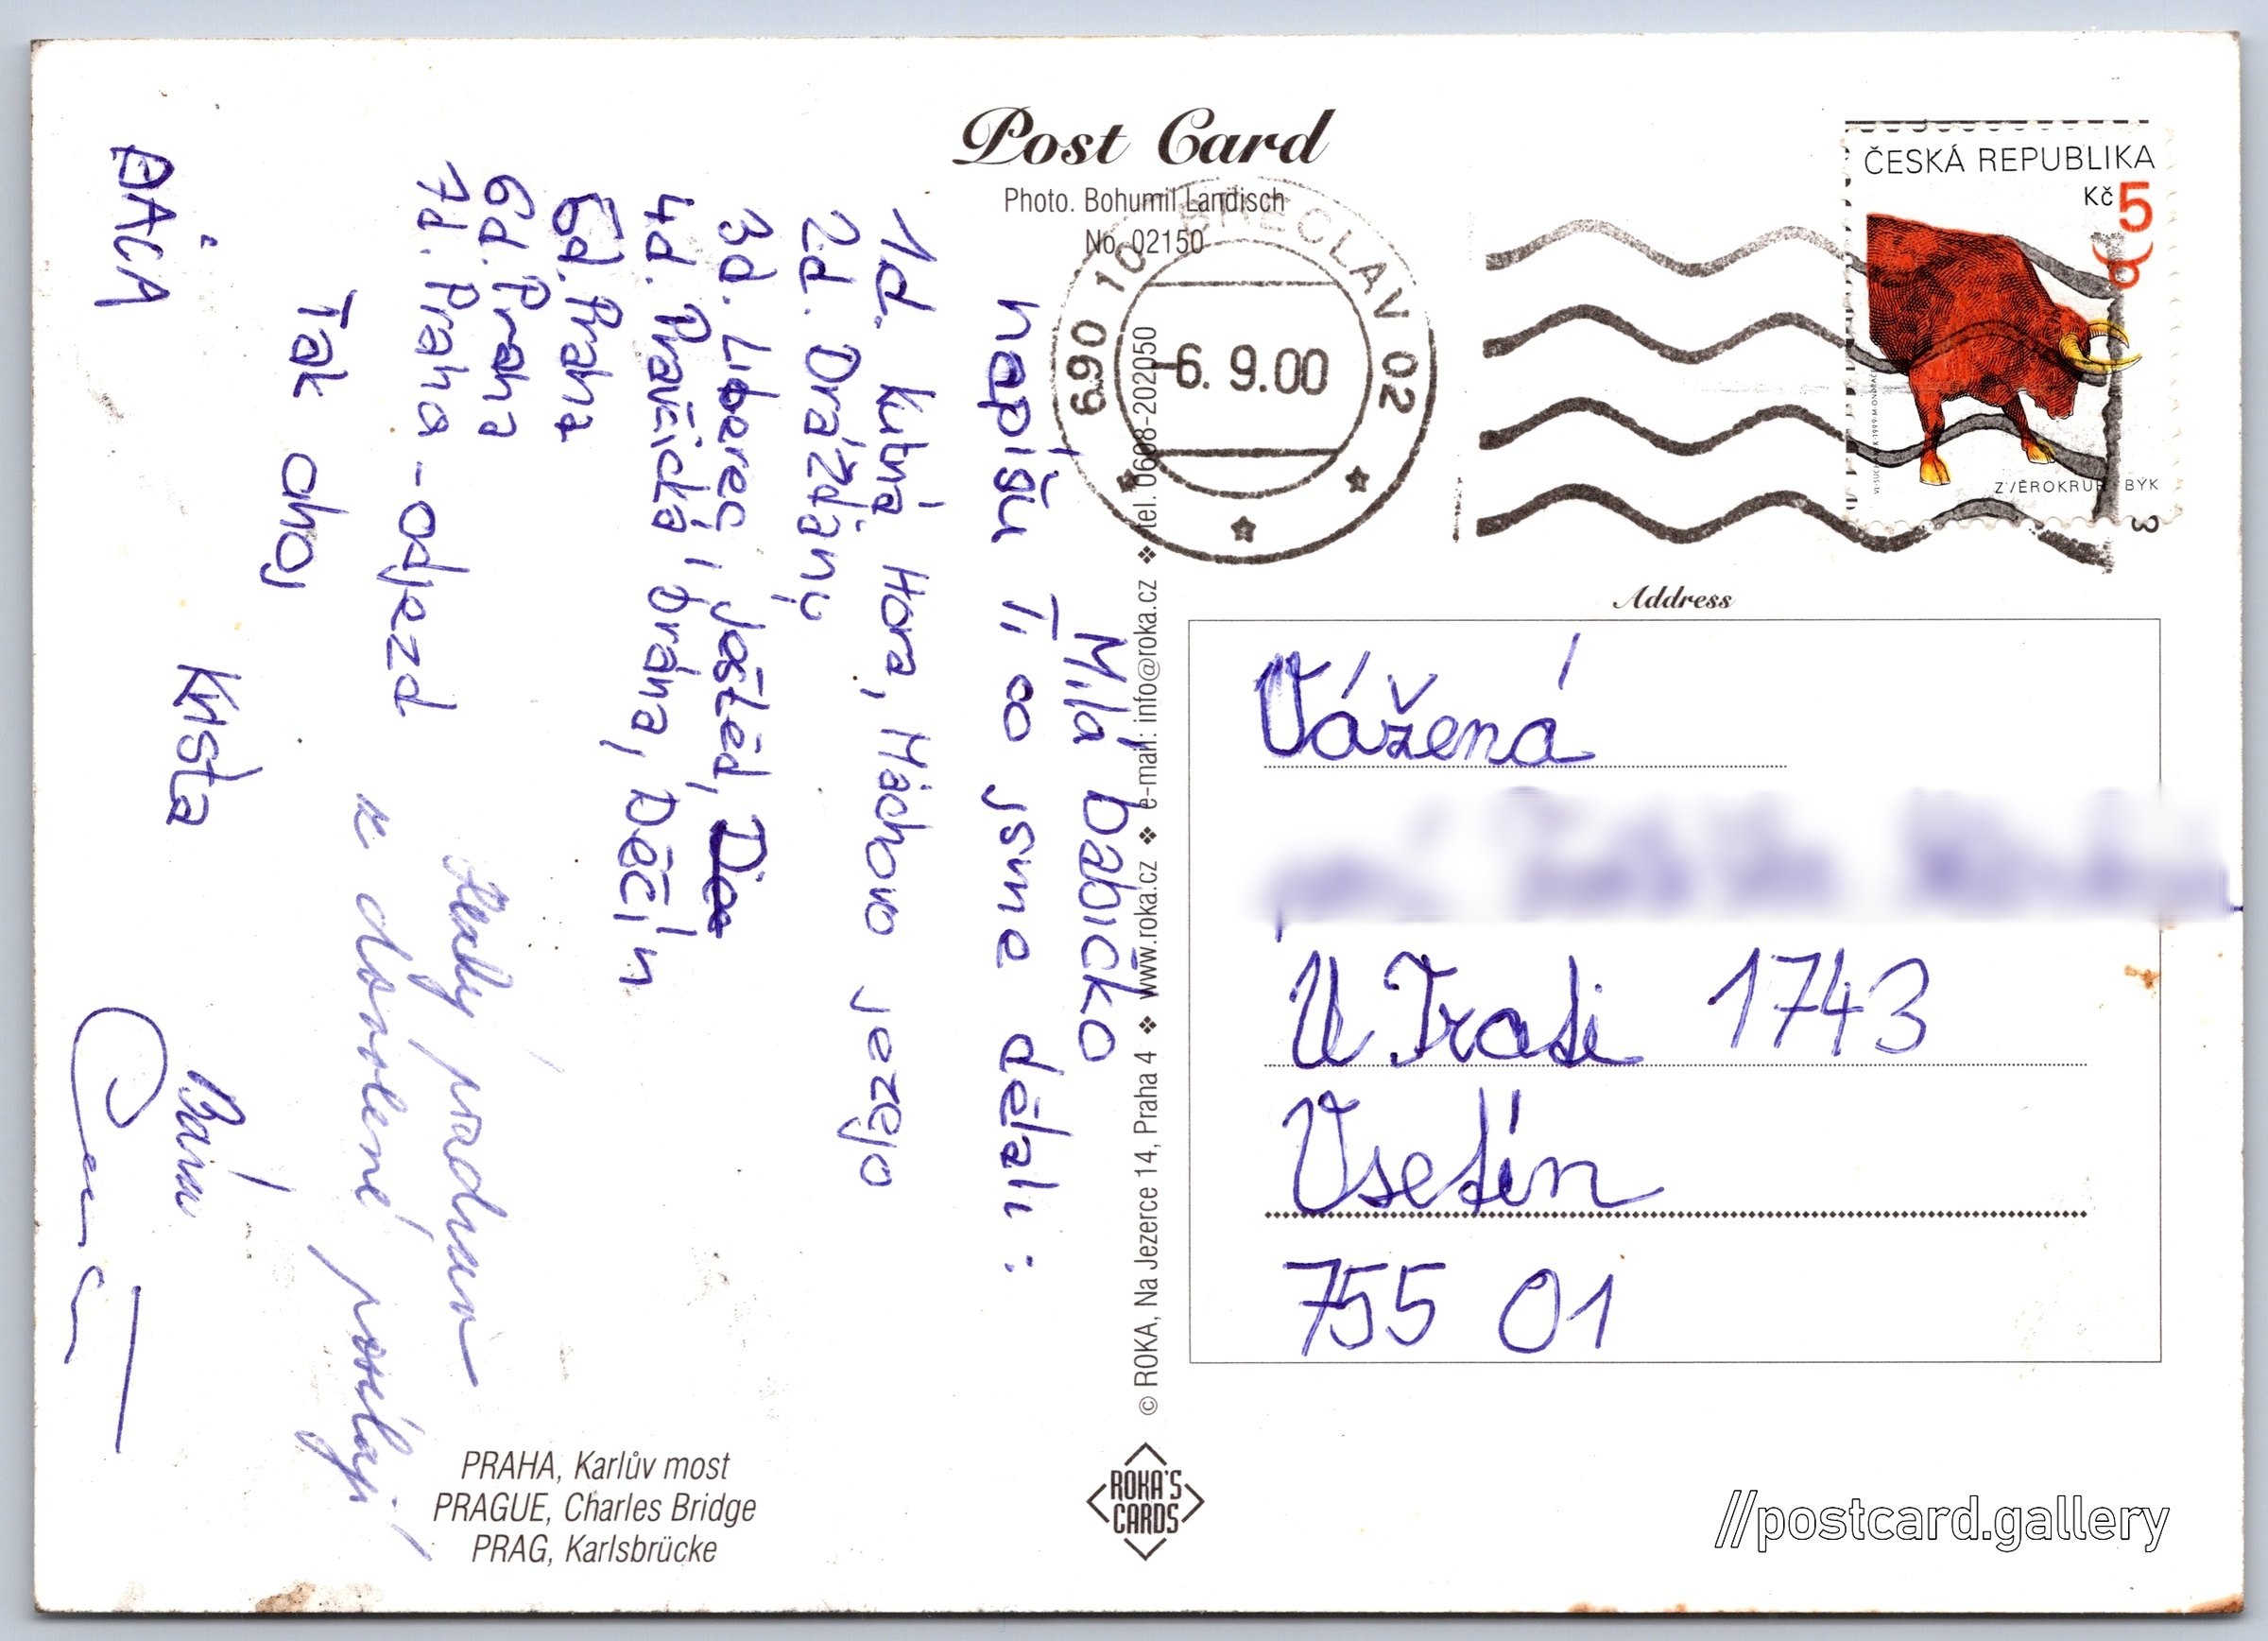 Post Card
Photo. Bohumil Landisch
No. 02150
690 02 BŘECLAV 02
-6. 9.00
ČESKÁ REPUBLIKA
Kč 5
BÝK
3
Milá babičko
napíšu Ti co jsme dělali:
1d. Kutná Hora, Máchovo jezejo
2d. Drážďany
3d. Liberec, Ještěd,
4d. Pravčická brána, Děčín
5d. Praha
6d. Praha
7d. Praha - odjezd
Tak ahoj
Krista
BÁCA
z dovolené posílají
© ROKA, Na Jezerce 14, Praha 4 ❖ www.roka.cz ❖ e-mail: info@roka.cz ❖ tel. 0608-202050
Address
Vážená
U Trati 1743
Vsetín
755 01
PRAHA, Karlův most
PRAGUE, Charles Bridge
PRAG, Karlsbrücke
ROKA'S
CARDS
//postcard.gallery